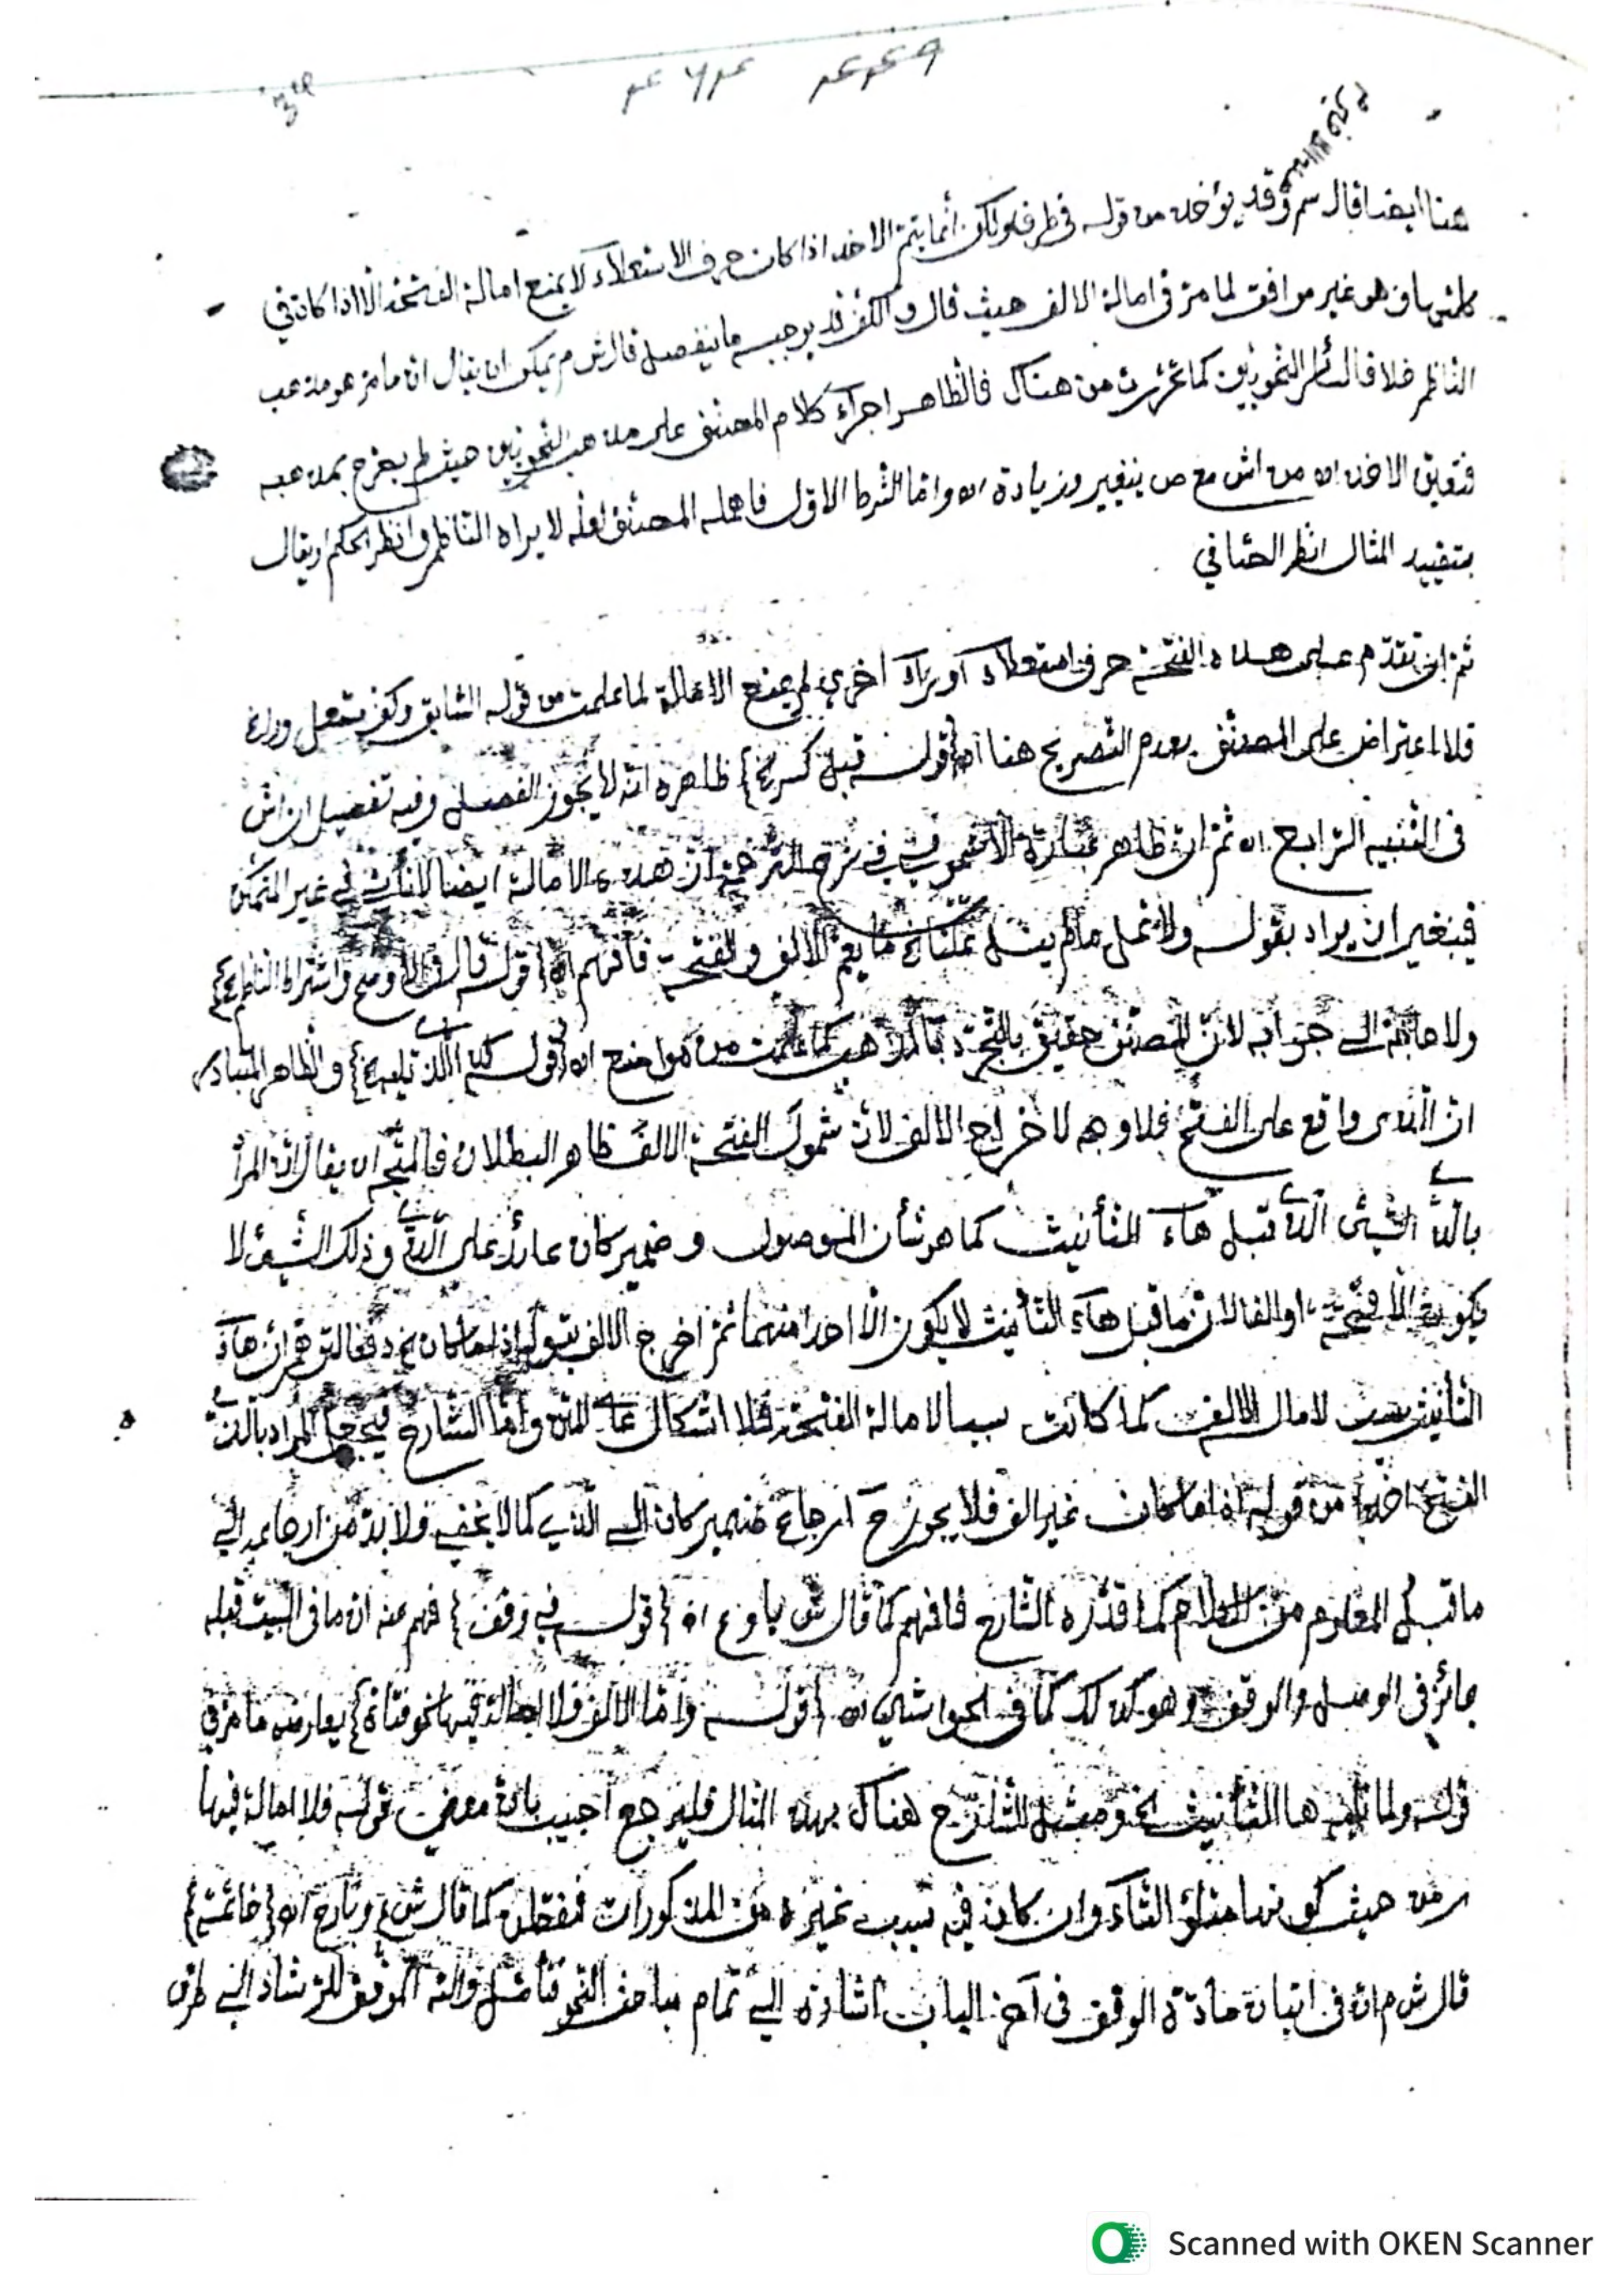 هنا ايضا قال سم وقد يؤخذ من قوله في طرف ولكن انما يتم الاخذ اذا كان حرف الاستعلاء لا يمنع امالة الفتحة الا اذا كان في
كلمتها وهو غير موافق لما مر في امالة الالف حيث قال والكف قد يوجبه ما ينفصل قال ش م يمكن ان يقال ان ما مر هو مذهب
الناظم خلافا لاكثر النحويين كما عرفت من هناك فالظاهر اجراء كلام المصنف على مذهب النحويين حيث لم يصرح بمذهبه
فتعين الاخذ اه من اش مع ص بتغيير وزيادة اه واما الشرط الاول فاهمله المصنف لعله لا يراه الناظم وانظر الحكم او يقال
بتقييد المثال انظر الحفاني
ثم ان تقدم على هذه الفتحة حرف استعلاء او راء اخرى لم يمنع الامالة لما علمت من قوله السابق وكف مستعل ورا
فلا اعتراض على المصنف بعدم التصريح هنا اه {قوله قبل كسر الخ} ظاهره انه لا يجوز الفصل وفيه تفصيل ان اش
في التنبيه الرابع اه ثم ان ظاهر عبارة الاشموني في شرح الترجمة ان هذه الامالة ايضا لا تأتي في غير المتمكن
فينبغي ان يراد بقوله ولا تمل ما لم ينل تمكنا الخ ما يعم الالف والفتحة فافهم اه {قوله قال في الاوضح واشتراط الناظم الخ}
ولا حاجة الى جوابه لان المصنف حقيق بالتجرد بالمذهب كما علمت من مواضع اه {قوله كذا الذي تليه الخ} والظاهر المتبادر
ان الذي واقع على الفتح فلا وجه لاخراج الالف لان شمول الفتحة الالف ظاهر البطلان فالمتجه ان يقال ان المراد
بالذي الشيئ الذي قبل هاء التأنيث كما هو شأن الموصول وضمير كان عائد على الذي وذلك الشيئ لا
يكون الا فتحة او الفا لان ما قبل هاء التأنيث لا يكون الا احدا منهما ثم اخرج الالف بقوله اذا ما كان الخ دفعا لتوهم ان هاء
التأنيث سبب لامالة الالف كما كانت سببا لامالة الفتحة فلا اشكال على المتن واما الشارح فيجعل المراد بالذي
الفتح اخذا من قوله اذا ما كان غير الف فلا يجوز ح ارجاع ضمير كان الى الذي كما لا يخفى ولا بد من ارجاعه الى
ما قبل المعلوم من الكلام كما قدره الشارح فافهم كما قال ش با وع اه {قوله في وقف} فهم عنه ان ما في البيت قبله
جائز في الوصل والوقف وهو كذلك كما في الحواشي اه {قوله واما الالف فلا امالة فيها نحو فتاة} يعارضه ما مر في
قوله ولما تليه ها التأنيث الخ ومثل الشارح هناك بهذا المثال فليرجع اجيب بان معنى قوله فلا امالة فيها
من حيث كونها متلو التاء وان كان فيه سبب غيره من المذكورات كما قال ش ع اه {خاتمة}
قال ش م ان في اتيان مادة الوقف في آخر الباب اشارة الى تمام مباحث النحو فتأمل والله الموفق للرشاد الى طرق
Scanned with OKEN Scanner